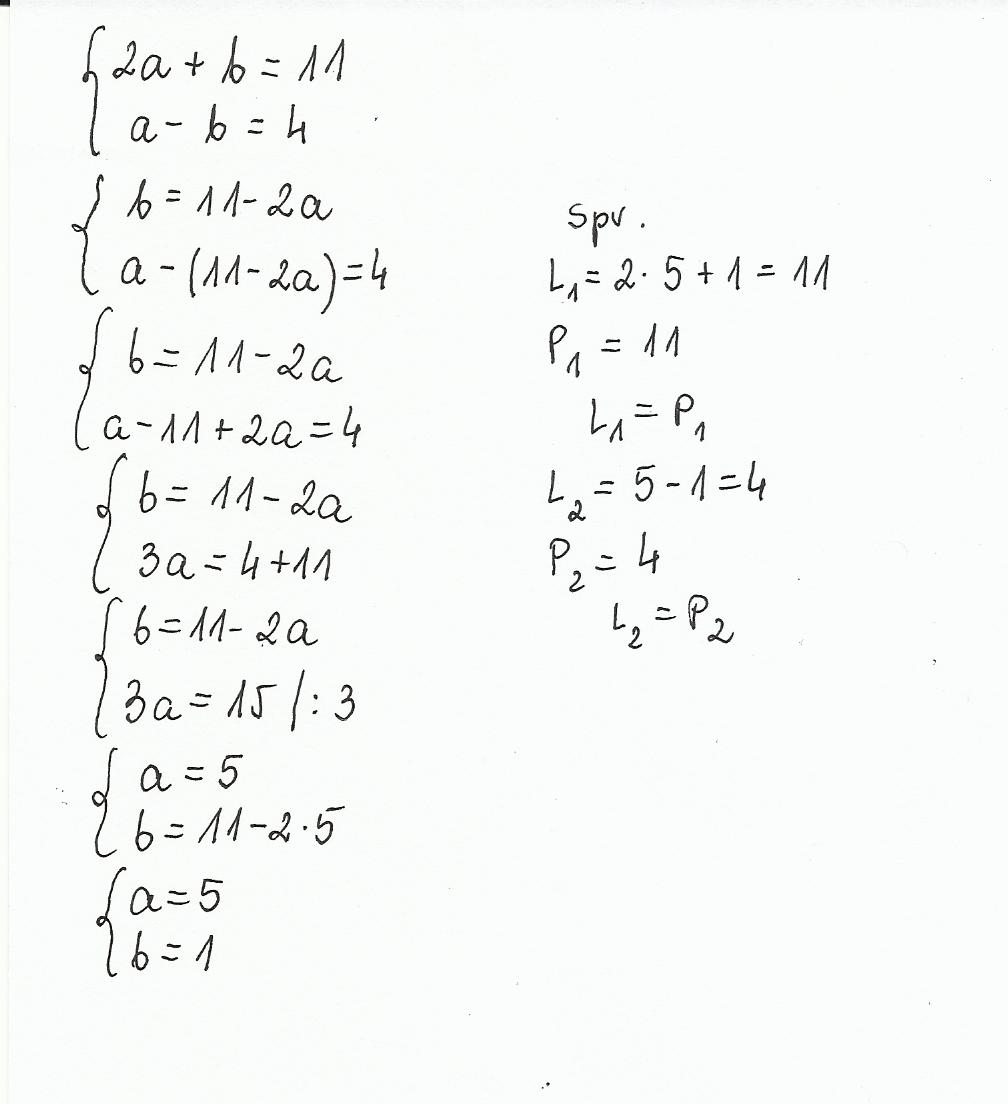 2a + b = 11
a - b = 4
b = 11 - 2a
a - (11 - 2a) = 4
b = 11 - 2a
a - 11 + 2a = 4
b = 11 - 2a
3a = 4 + 11
b = 11 - 2a
3a = 15 /: 3
a = 5
b = 11 - 2 · 5
a = 5
b = 1
Spr.
L₁ = 2 · 5 + 1 = 11
P₁ = 11
L₁ = P₁
L₂ = 5 - 1 = 4
P₂ = 4
L₂ = P₂